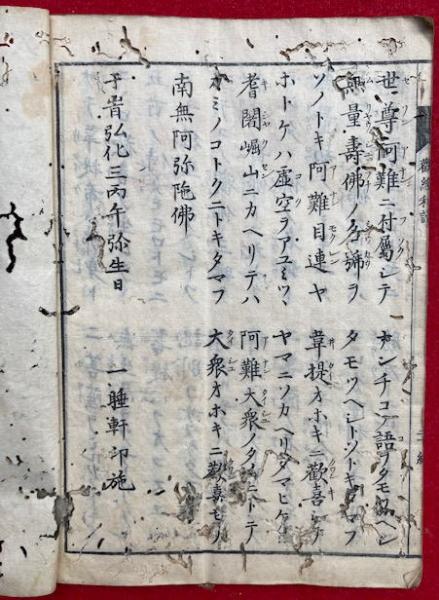 觀經和讃
世尊阿難ニ付屬シテ　ナンチコノ語ヲタモツヘシ
無量壽佛ノ名號ヲ　タモツヘシトソトキタマフ
ソノトキ阿難目連ヤ　韋提オホキニ歡喜シテ
ホトケハ虚空ヲアユミツヽ　ヤマニソカヘリタマヒケル
耆闍崛山ニカヘリテハ　阿難大衆ノタメニトテ
カミノコトクニトキタマフ　大衆オホキニ歡喜セリ
南無阿弥陁佛
于旹弘化三丙午弥生日　一睡軒印施